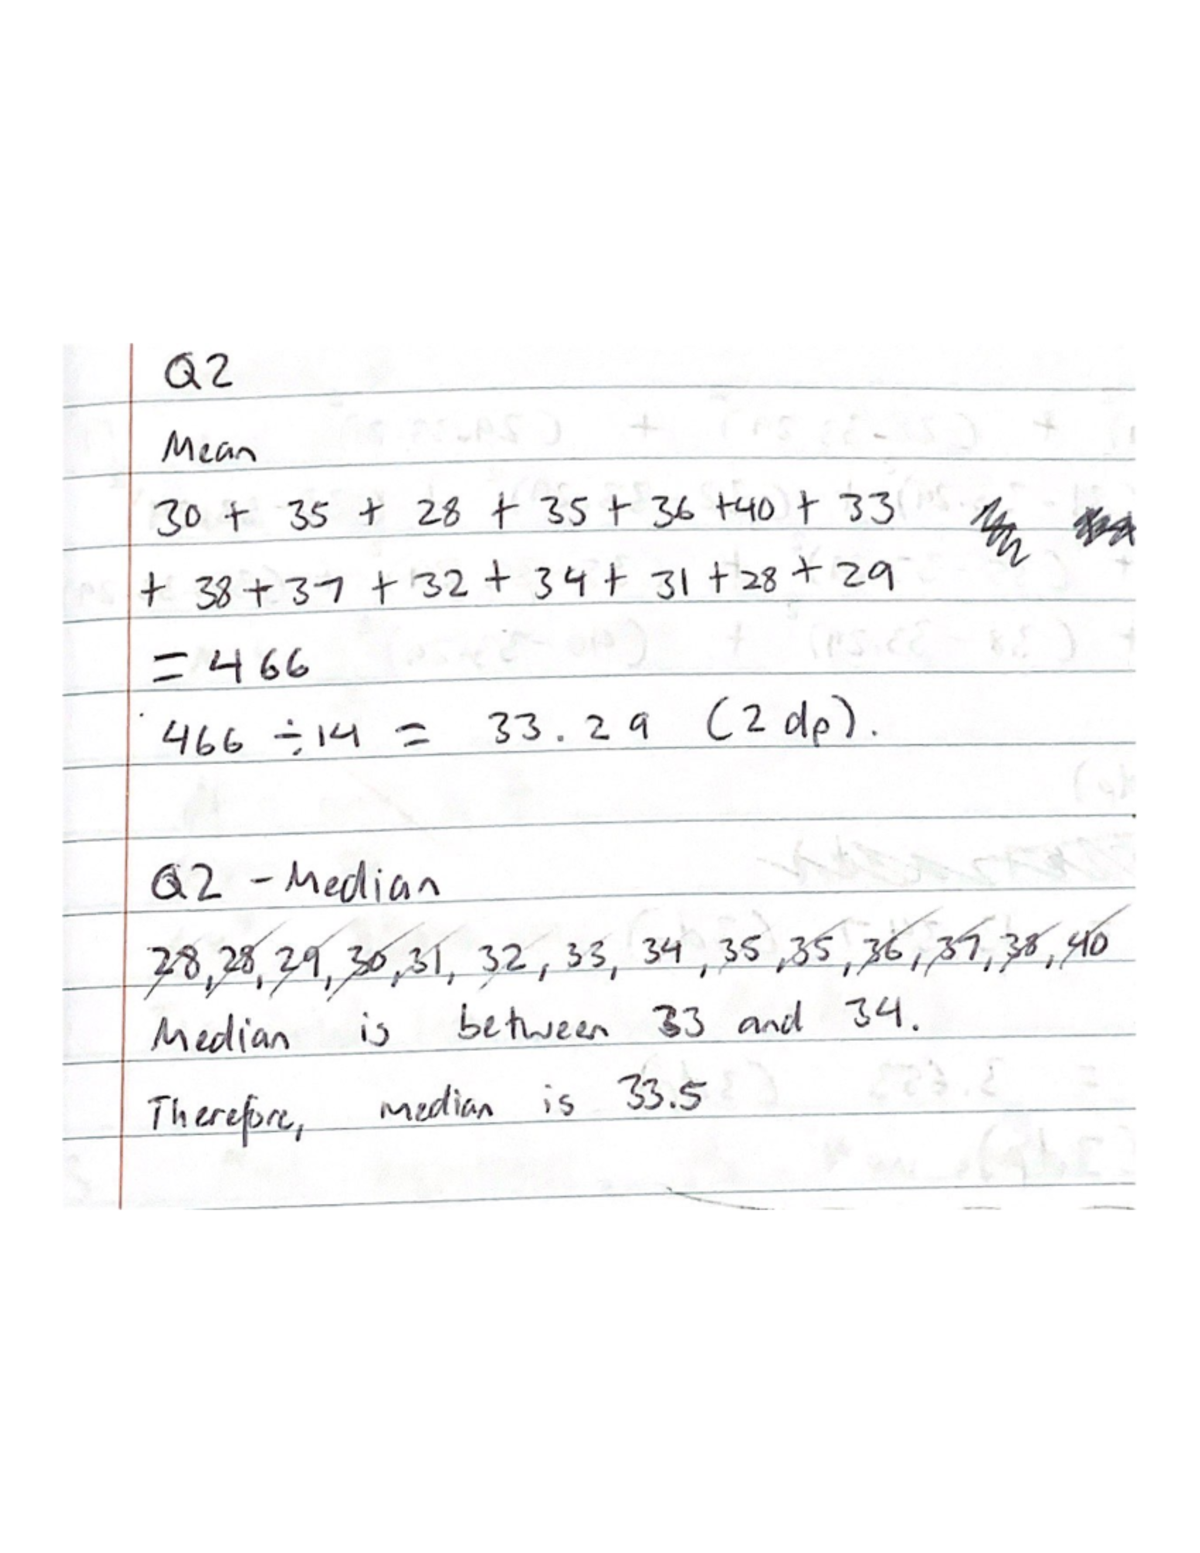 Q2
Mean
30 + 35 + 28 + 35 + 36 + 40 + 33
+ 38 + 37 + 32 + 34 + 31 + 28 + 29
= 466
466 ÷ 14 = 33.29 (2 dp).
Q2 - Median
28, 28, 29, 30, 31, 32, 33, 34, 35, 35, 36, 37, 38, 40
Median is between 33 and 34.
Therefore, median is 33.5